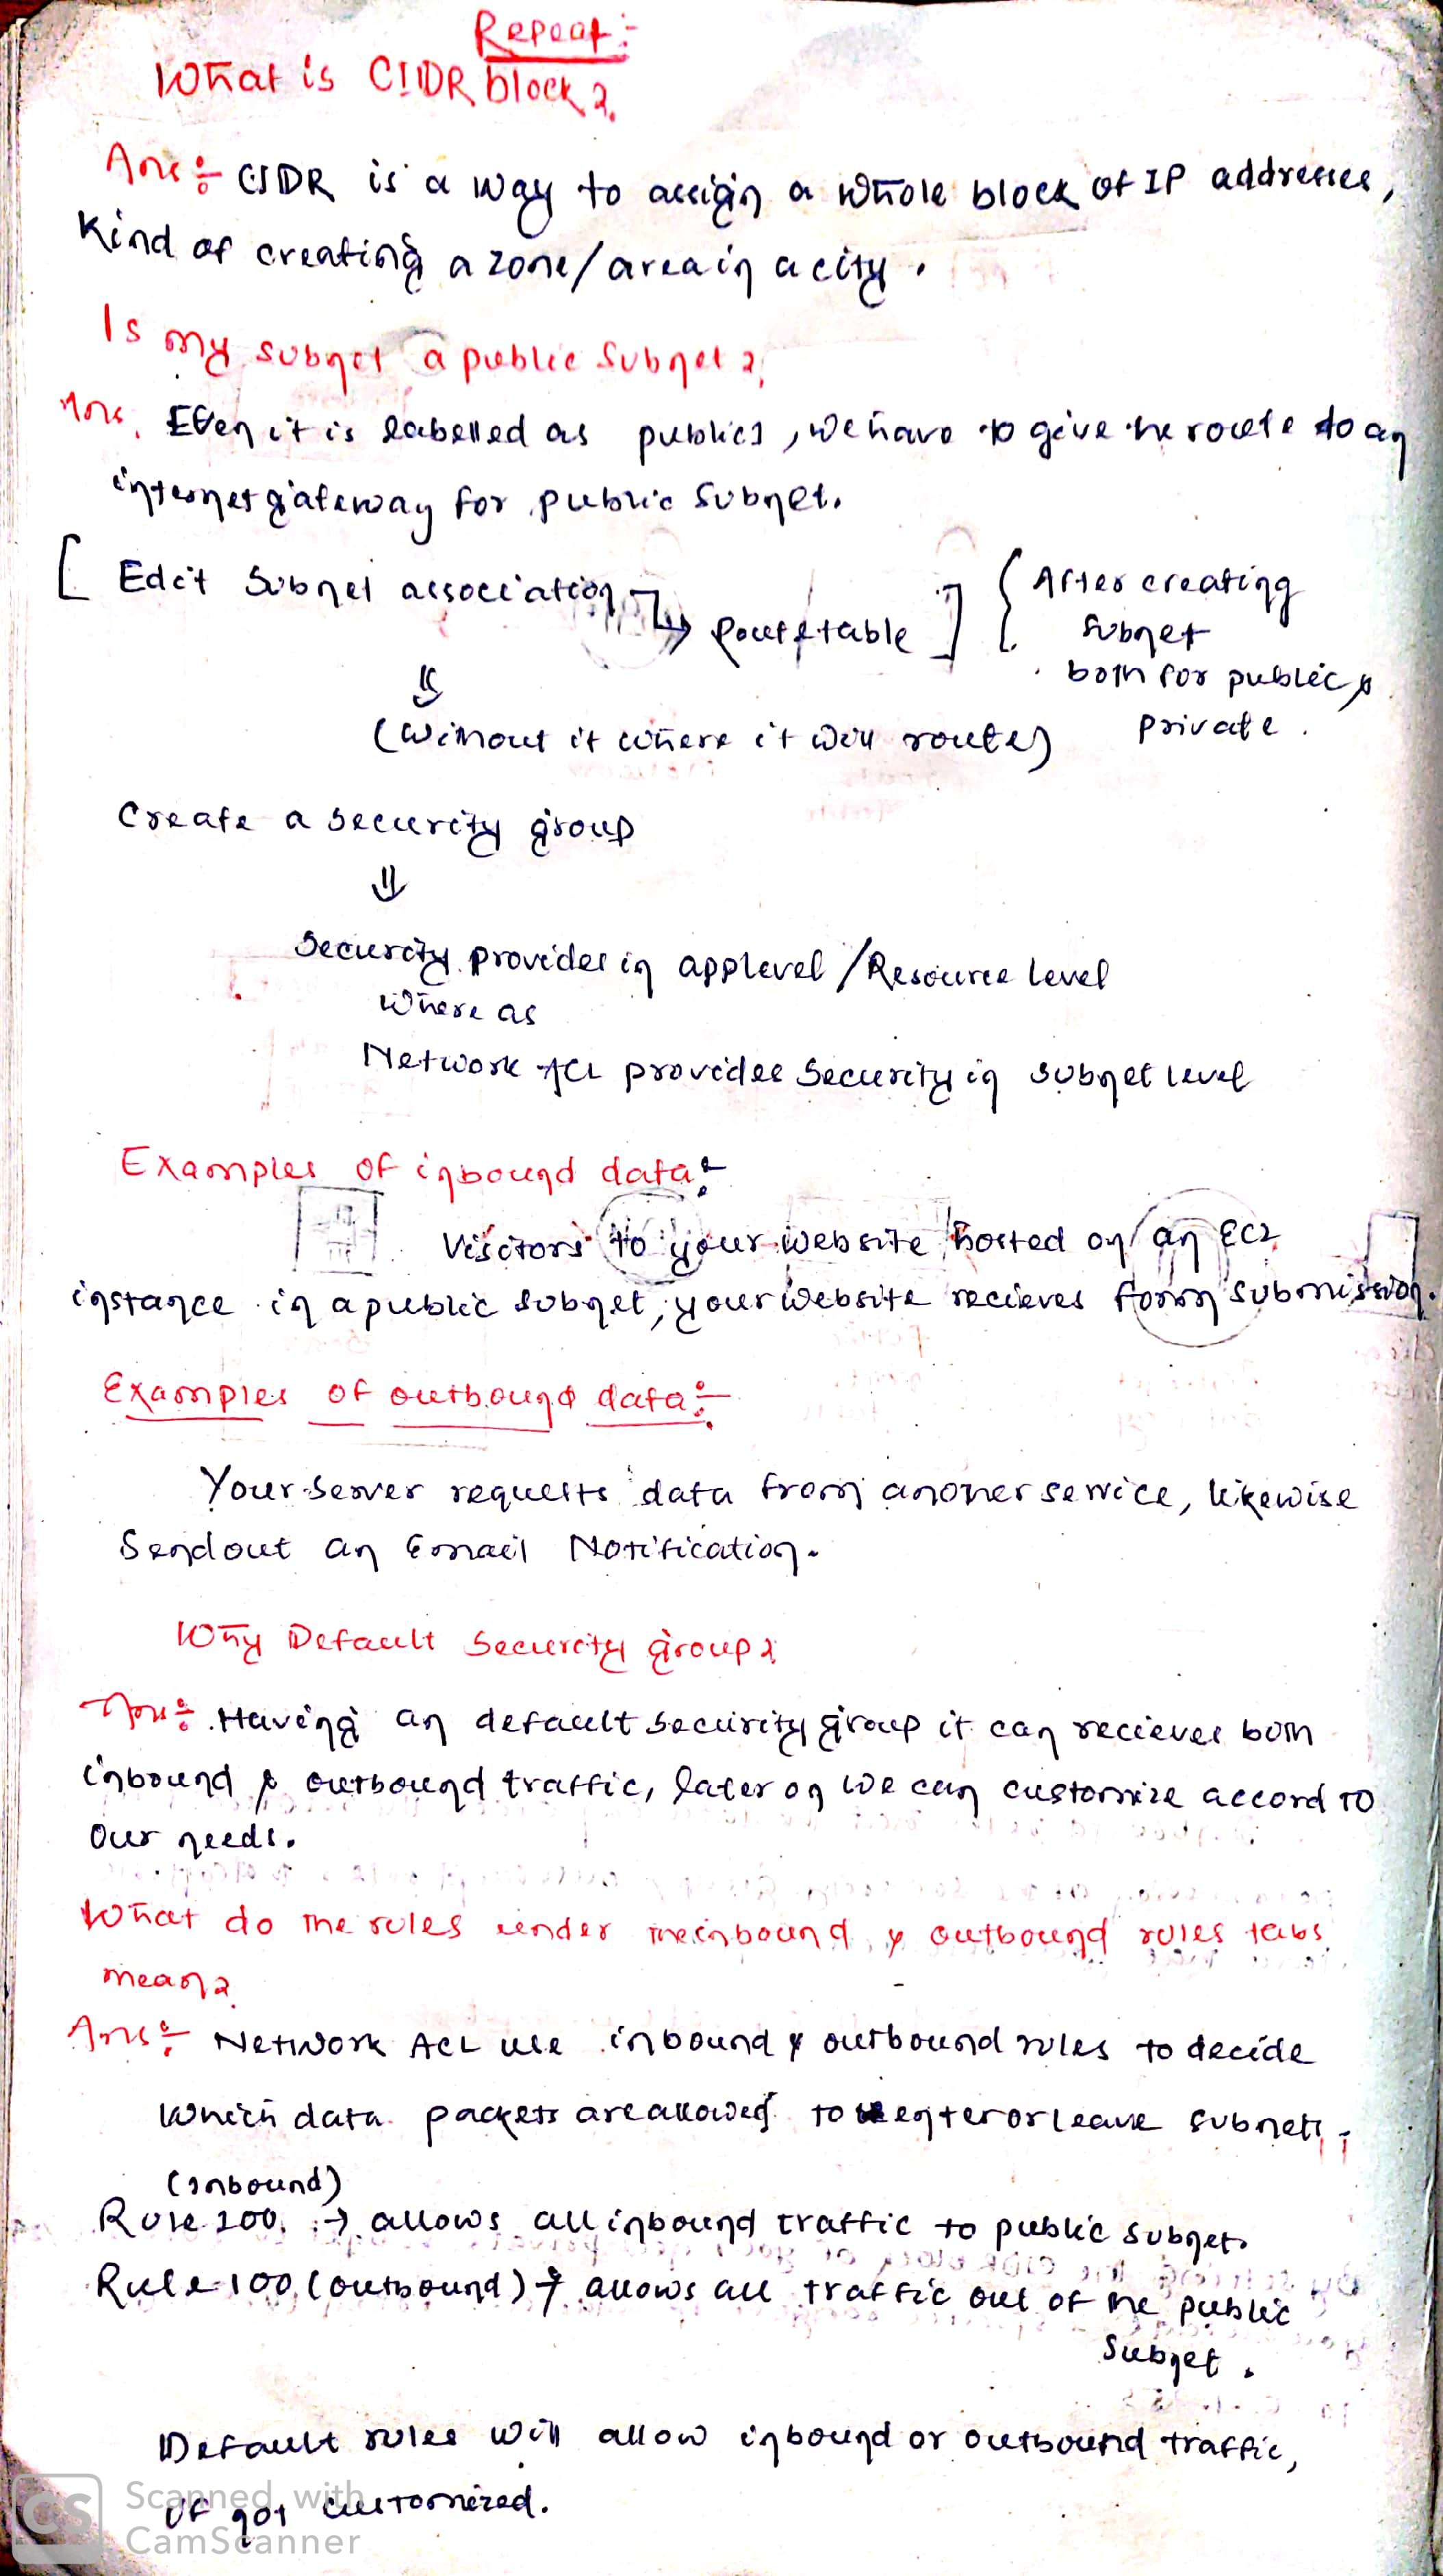 Repeat:-
What is CIDR block?
Ans:- CIDR is a way to assign a whole block of IP addresses,
Kind of creating a zone/area in a city.
Is my subnet a public subnet?
Ans. Even it is labelled as public1, we have to give the route to an
internet gateway for public subnet.
[ Edit Subnet association → Route table ] { After creating
subnet
both for public &
private.
⇓
(Without it where it will route)
Create a security group
⇓
Security provides in app level / Resource level
Where as
Network ACL provides security in subnet level
Examples of inbound data:-
Visitors to your website hosted on an EC2
instance in a public subnet, your website recieves form submission.
Examples of outbound data:-
Your server requests data from another service, likewise
Send out an Email Notification.
Why Default Security group?
Ans:- Having an default security group it can recieves both
inbound & outbound traffic, later on we can customize accord to
our needs.
What do the rules under the inbound & outbound rules tabs
mean?
Ans:- Network ACL use inbound & outbound rules to decide
which data packets are allowed to enter or leave subnets.
(inbound)
Rule 100 → allows all inbound traffic to public subnet.
Rule 100 (outbound) → allows all traffic out of the public
Subnet.
Default rules will allow inbound or outbound traffic,
if not customized.
CS Scanned with
CamScanner